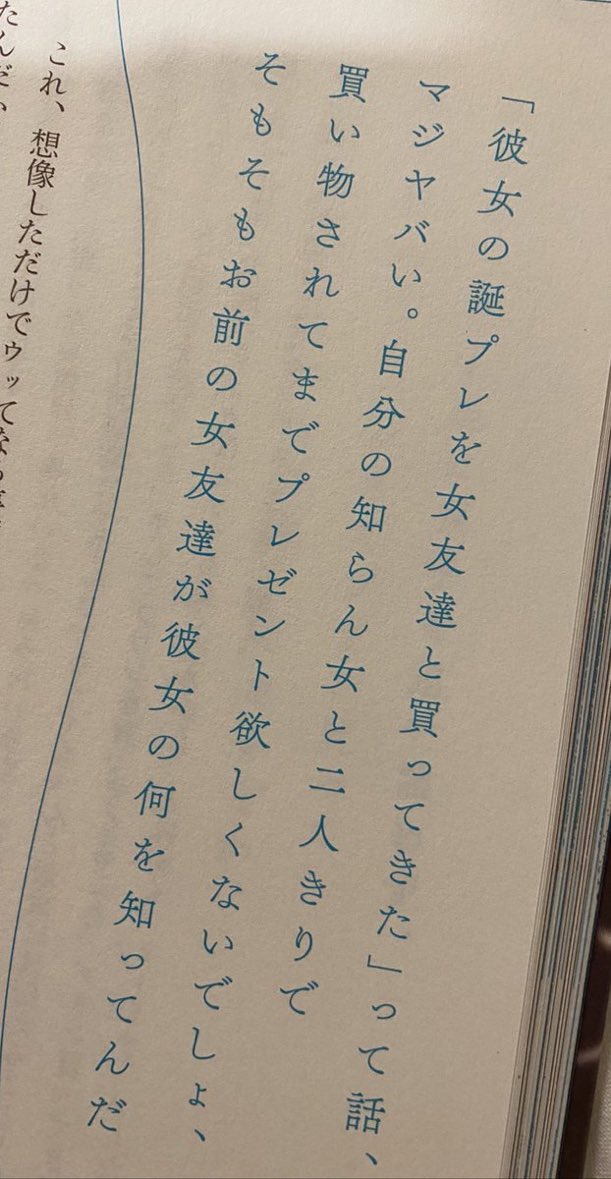 「彼女の誕プレを女友達と買ってきた」って話、
マジヤバい。自分の知らん女と二人きりで
買い物されてまでプレゼント欲しくないでしょ、
そもそもお前の女友達が彼女の何を知ってんだ
これ、想像しただけでゥッてなっ
たんだ、